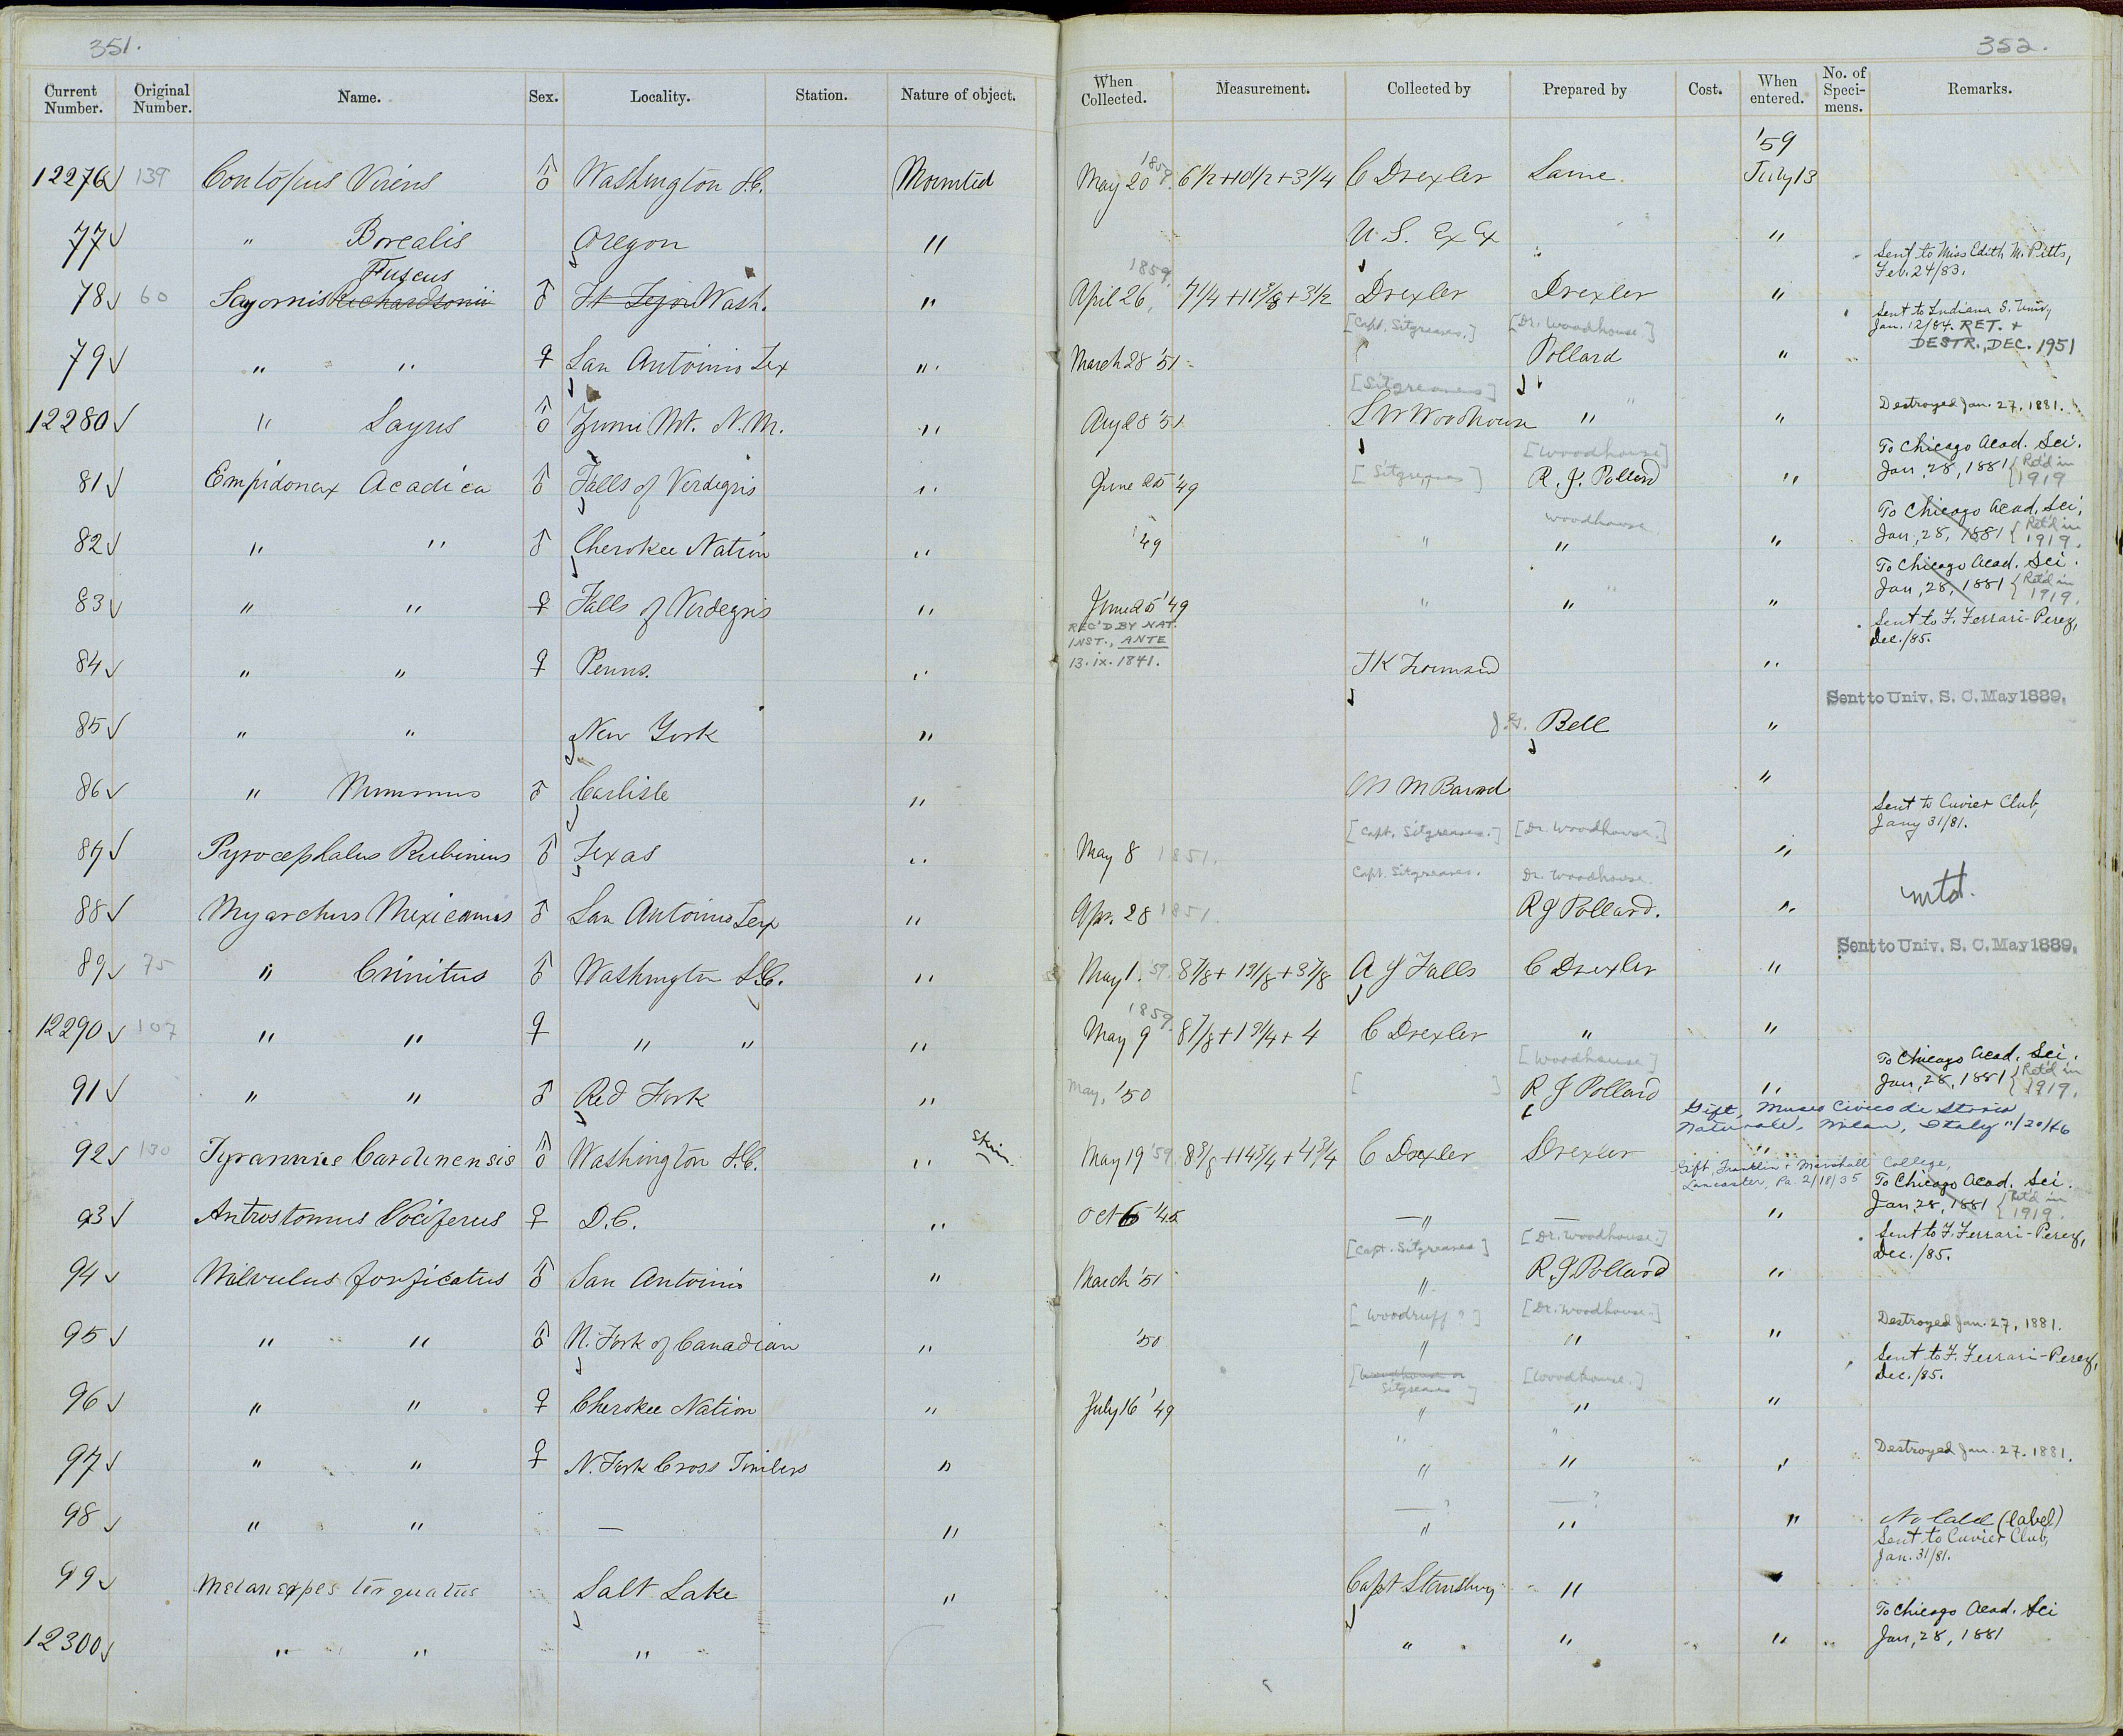 351.
352.
Current Number. Original Number. Name. Sex. Locality. Station. Nature of object. When Collected. Measurement. Collected by Prepared by Cost. When entered. No. of Speci- mens. Remarks.
'59
12276 139 Contopus Virens ♂ Washington D.C. Mounted May 20 1859. 6 1/2 + 10 1/2 + 3 1/4 C Drexler Same. July 13
77 " Borealis Oregon " U. S. Ex Ex " "
Sent to Miss Edith M. Pitts,
Feb. 24/83.
Fuscus
1859.
78 60 Sayornis Richardsonii ♂ Ft Tejon Wash. " April 26, 7 1/4 + 11 3/8 + 3 1/2 Drexler Drexler "
Sent to Indiana S. Univ,
Jan. 12/84. RET. +
DESTR., DEC. 1951
[Capt. Sitgreaves.] [Dr. Woodhouse]
79 " " ♀ San Antoinio Tex " March 28 '51 Pollard "
[Sitgreaves] "
12280 " Sayus ♂ Zuni Mt. N.M. " Aug 28 '51 S W Woodhouse " " Destroyed Jan. 27, 1881.
[Woodhouse]
81 Empidonax Acadica ♂ Falls of Verdegris " June 25 '49 [Sitgreaves] R. J. Pollard "
To Chicago Acad. Sci.
Jan, 28, 1881 { Ret'd in 1919
woodhouse
82 " " ♂ Cherokee Nation " '49 " " "
To Chicago Acad. Sci.
Jan, 28, 1881 { Ret'd in 1919.
83 " " ♀ Falls of Verdegris " June 25 '49 " " "
To Chicago Acad. Sci.
Jan, 28, 1881 { Ret'd in 1919.
REC'D BY NAT.
INST., ANTE
13. ix. 1841.
84 " " ♀ Penns. " J K Townsend "
Sent to F. Ferrari-Perez,
Dec./85.
85 " " New York " J. G. Bell " Sent to Univ. S. C. May 1889.
86 " Minimus ♂ Carlisle " W M Baird "
[Capt. Sitgreaves.] [Dr. Woodhouse.]
87 Pyrocephalus Rubineus ♂ Texas " May 8 1851. "
Sent to Cuvier Club,
Jany 31/81.
Capt. Sitgreaves. Dr. Woodhouse.
88 Myarchus Mexicanus ♂ San Antoinio Tex " Apr. 28 1851. R J Pollard. " mtd.
89 75 " Crinitus ♂ Washington D.C. " May 1. '59. 8 7/8 + 13 1/8 + 3 7/8 A J Falls C Drexler " Sent to Univ. S. C. May 1889.
1859.
12290 107 " " ♀ " " " May 9 8 7/8 + 13 1/4 + 4 C Drexler " "
[Woodhouse]
91 " " ♂ Red Fork " May, '50 [ ] R J Pollard "
To Chicago Acad. Sci.
Jan, 28, 1881 { Ret'd in 1919.
Gift, Museo Civico di Storia
Naturale, Milan, Italy 11/20/46
92 130 Tyrannus Carolinensis ♂ Washington D.C. " Skin May 19 '59 8 3/8 + 14 3/4 + 4 3/4 C Drexler Drexler "
Gift, Franklin & Marshall College,
Lancaster, Pa. 2/18/35
93 Antrostomus Vociferus ♀ D.C. " Oct 6 '45 " — "
To Chicago Acad. Sci.
Jan, 28, 1881 { Ret'd in 1919.
[Capt. Sitgreaves] [Dr. Woodhouse.]
94 Milvulus forficatus ♂ San Antoinio " March '51 " R. J. Pollard "
Sent to F. Ferrari-Perez,
Dec./85.
[Woodruff?] [Dr. Woodhouse.]
95 " " ♂ N. Fork of Canadian " '50 " " " Destroyed Jan. 27, 1881.
[Woodhouse or Sitgreaves] [Woodhouse.]
96 " " ♀ Cherokee Nation " July 16 '49 " " "
Sent to F. Ferrari-Perez,
Dec./85.
" "
97 " " ♀ N. Fork Cross Timbers " " " " Destroyed Jan. 27. 1881.
—? —?
98 " " — " " " " No label (label)
Sent to Cuvier Club,
Jan. 31/81.
99 Melanerpes torquatus Salt Lake " Capt Stansbury " "
12300 " " " " " "
To Chicago Acad. Sci
Jan, 28, 1881